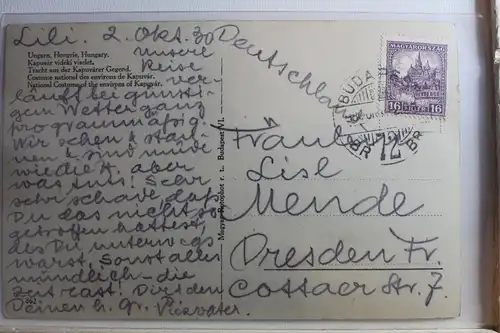 Lili. 2. Okt. 30
Ungarn, Hongrie, Hungary.
Kapuvár vidéki viselet.
Tracht aus der Kapuvárer Gegend.
Costume national des environs de Kapuvár.
National Costume of the environs of Kapuvár.
Unsere
Reise ver-
läuft bei günsti-
gem Wetter ganz
programmäßig.
Wir sehen & stau-
nen & sind müde
wie die H. aber
was tuts! Sehr,
sehr schade, daß
Du das nicht so
getroffen hattest,
als Du unterwegs
warst. Sonst alles
mündlich – die
Zeit rast! Dir & den
Deinen h. Gr.
Magyar Rotophot r. t., Budapest VI.
Deutschland
MAGYARORSZÁG
16 FILLÉR 16
BUDA
72
Fräul.
Lisl
Mende
Dresden Fr.
Cottaer Str. 7.